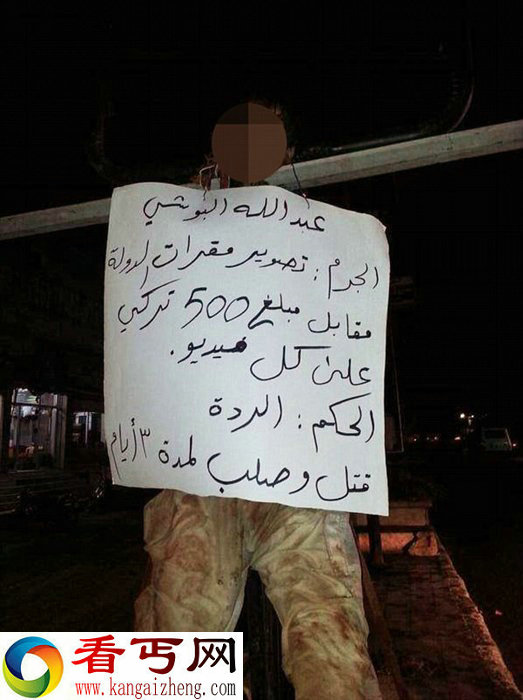 عبدالله البوشي
الجرم: تصوير مقرات الدولة
مقابل مبلغ 500 تركي
على كل فيديو.
الحكم: الردة
قتل وصلب لمدة ٣ أيام
看丐网
www.kangaizheng.com